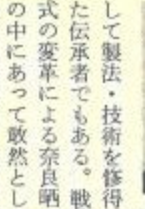 して製法・技術を修得
た伝承者でもある。戦
式の変革による奈良晒
の中にあって敢然とし